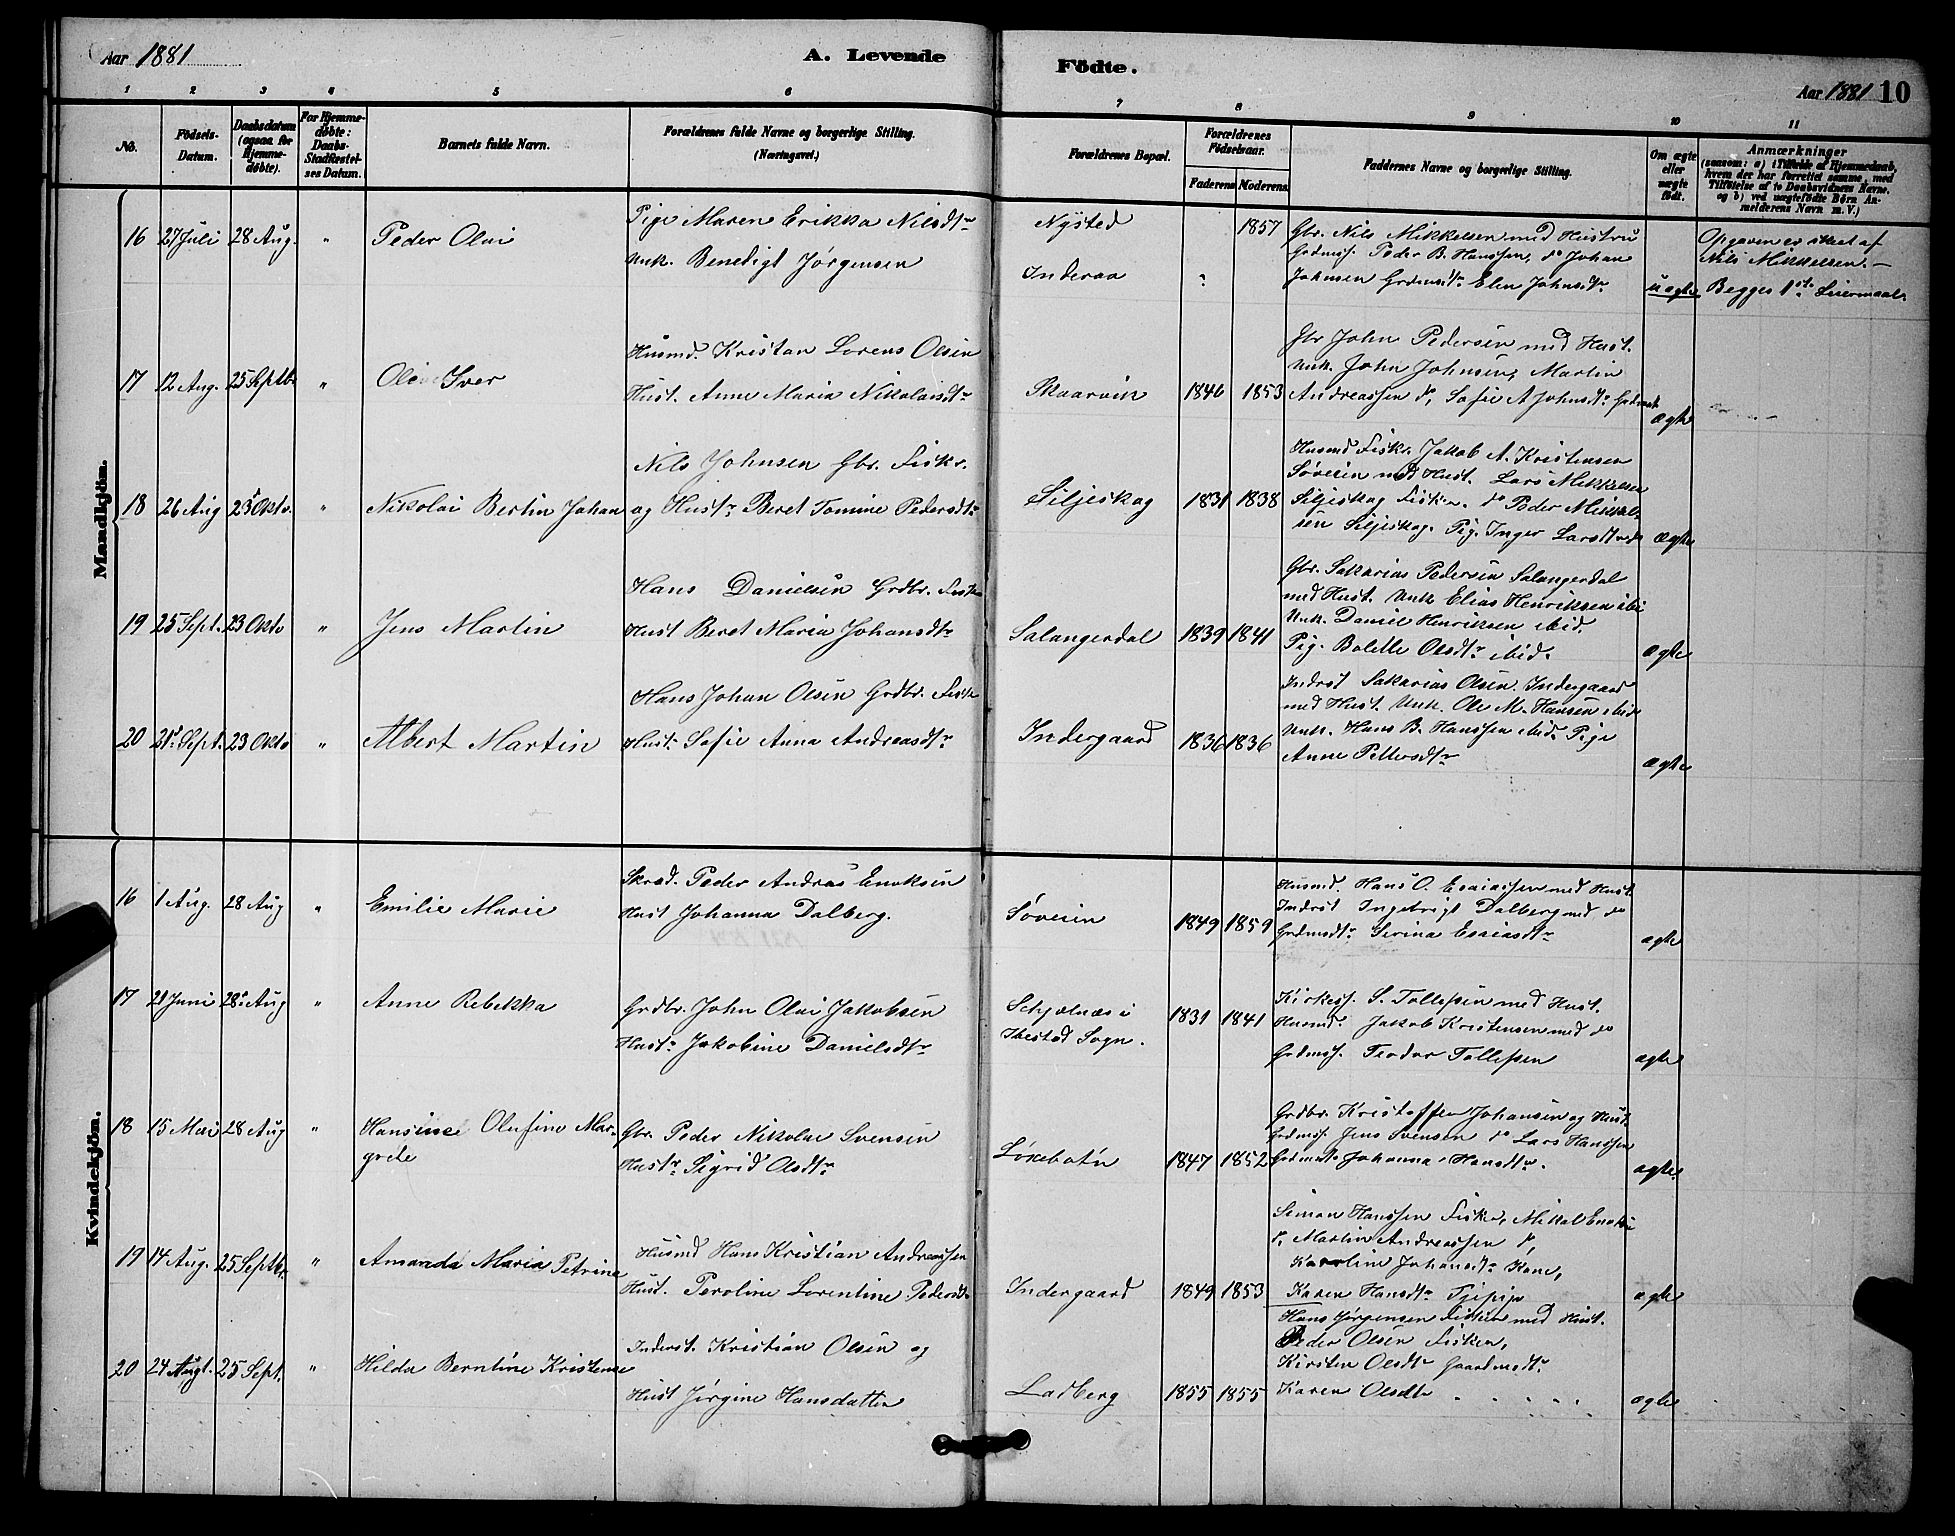 Aar 1881
A. Levende
Födte.
Aar 1881 10
1 2 3 4 5 6 7 8 9 10 11
No.
Födsels-
Datum.
Daabsdatum
(ogsaa for
Hjemme-
døbte).
For Hjemme-
døbte:
Daabs-
Stadfæstel-
ses Datum.
Barnets fulde Navn.
Forældrenes fulde Navne og borgerlige Stilling.
(Næringsvei.)
Forældrenes Bopæl.
Forældrenes
Födselsaar.
Faderens. Moderens.
Faddernes Navne og borgerlige Stilling.
Om ægte
eller
uægte
født.
Anmærkninger
(saasom: a) i Tilfælde af Hjemmedaab,
hvem der har forrettet samme, med
Tilføielse af to Daabsvidners Navne.
og b) ved uægtefödte Börn An-
melderens Navn m. V.)
Mandkjöm.
16 27 Juli 28 Aug. " Peder Olai
Pige Maren Erikka Nilsdtr
Unk. Benedigt Jørgensen
Nysted
Inderaa
1857
Gbr. Nils Mikkelsen med Hustru
Grdmsf. Peder B. Hanssen, do Johan
Johnsen Grdmdtr Elen Johnsdtr
uægte
Opgaven er skeet af
Nils Mikkelsen. —
Begges 1ste Leiermaal.
17 12 Aug. 25 Septb. " Ole Iver
Husmd. Kristan Lorens Olsen
Hust. Anne Maria Nikolaisdtr
Skaarvik 1846 1853
Gbr John Pedersen med Hust.
Unk. John Johnsen, Martin
Andreassen do, Sofie A Johnsdtr
ægte
18 26 Aug 23 Okto. " Nikolai Bertin Johan
Nils Johnsen Gbr. Fisk.
og Hustr Beret Tomine Pedersdtr
Siljeskog 1831 1838
Husmd Fisk. Jakob A. Kristensen
Søveien med Hust. Lars Mikkelsen
Siljeskog Fisker. do Peder Mikkel-
sen Siljeskog. Pig. Inger Larsdtr
ægte
19 25 Sept. 23 Okto " Jens Martin
Hans Danielsen Grdbr. Fisk
Hust Beret Maria Johansdtr
Salangerdal 1839 1841
Gbr. Sakarias Pedersen Salangerdal
med Hust. Unk Elias Henriksen ibi
Unk. Daniel Henriksen ibid.
Pig. Bolette Olsdtr ibid.
ægte
20 21 Sept. 23 Okto " Albert Martin
Hans Johan Olsen Grdbr. Fisk
Hust. Sofie Anna Andreasdtr
Indergaard 1836 1836
Inderst Sakarias Olsen. Indergaard
med Hust. Unk. Ole M. Hansen ibid
Unk. Hans B. Hanssen ibid. Pige
Anne Pettersdtr
ægte
Kvindekjöm.
16 1 Aug. 28 Aug " Emilie Marie
Skræd. Peder Andreas Enoksen
Hust Johanna Dalberg.
Søveien 1849 1859
Husmd. Hans O. Esaiassen med Hust
Inderst Ingebrigt Dalberg med do
Grdmdtr Serina Esaiasdtr
ægte
17 21 Juni 28 Aug " Anne Rebekka
Grdbr. John Olai Jakobsen
Hustr Jakobine Danielsdtr
Schjelnæs i
Ibestad Sogn.
1831 1841
Kirkes. S. Tollefsen med Hust.
Husmd. Jakob Kristensen med do
Grdmsf. Teodor Tollefsen
ægte
18 15 Mai 28 Aug " Hansine Olufine Mar-
grete
Gbr. Peder Nikolai Svensen
Hustr Sigrid Olsdtr
Løksebotn 1847 1852
Grdbr. Kristoffer Johansen og Hust.
Grdmsf. Jens Svensen do Lars Hanssen
Grdmdtr Johanna Hansdtr.
ægte
19 14 Aug. 25 Septbr. " Amanda Maria Petrine
Husmd Hans Kristian Andreassen
Hust. Peroline Lorentine Pedersdtr
Indergaard 1849 1853
Simon Hanssen Fisker, Mikal Enoksen
do, Martin Andreassen do,
Karoline Johansdtr Kone,
Karen Hansdtr Tjpige
ægte
20 24 Augt. 25 Sept. " Hilda Berntine Kristense
Inderst. Kristian Olsen og
Hust Jørgine Hansdatter
Ladberg 1855 1855
Hans Jørgensen Fisker med Hust.
Peder Olsen Fisker,
Kirsten Olsdtr Gaardmdtr
Karen Olsdtr " " " "
ægte